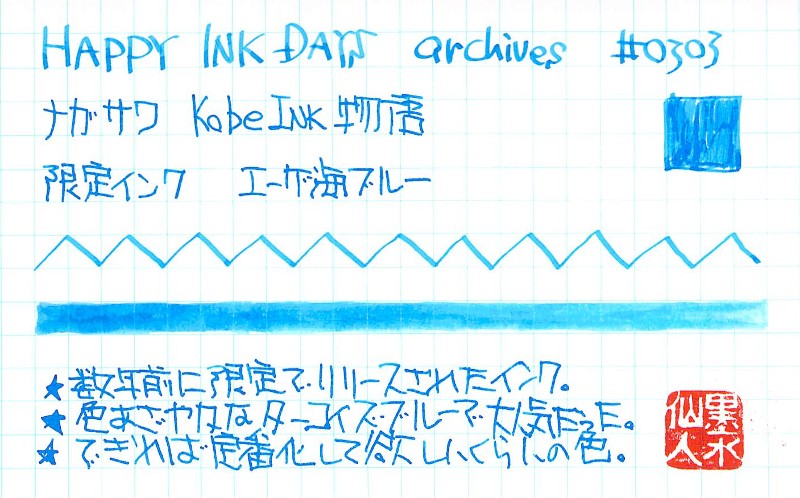 HAPPY INK DAYS archives #0303
ナガサワ Kobe INK 物語
限定インク エーゲ海ブルー
★数年前に限定でリリースされたインク。
★色あざやかなターコイズブルーで大人気だった。
★できれば定番化して欲しいくらいの色。
墨水仙人